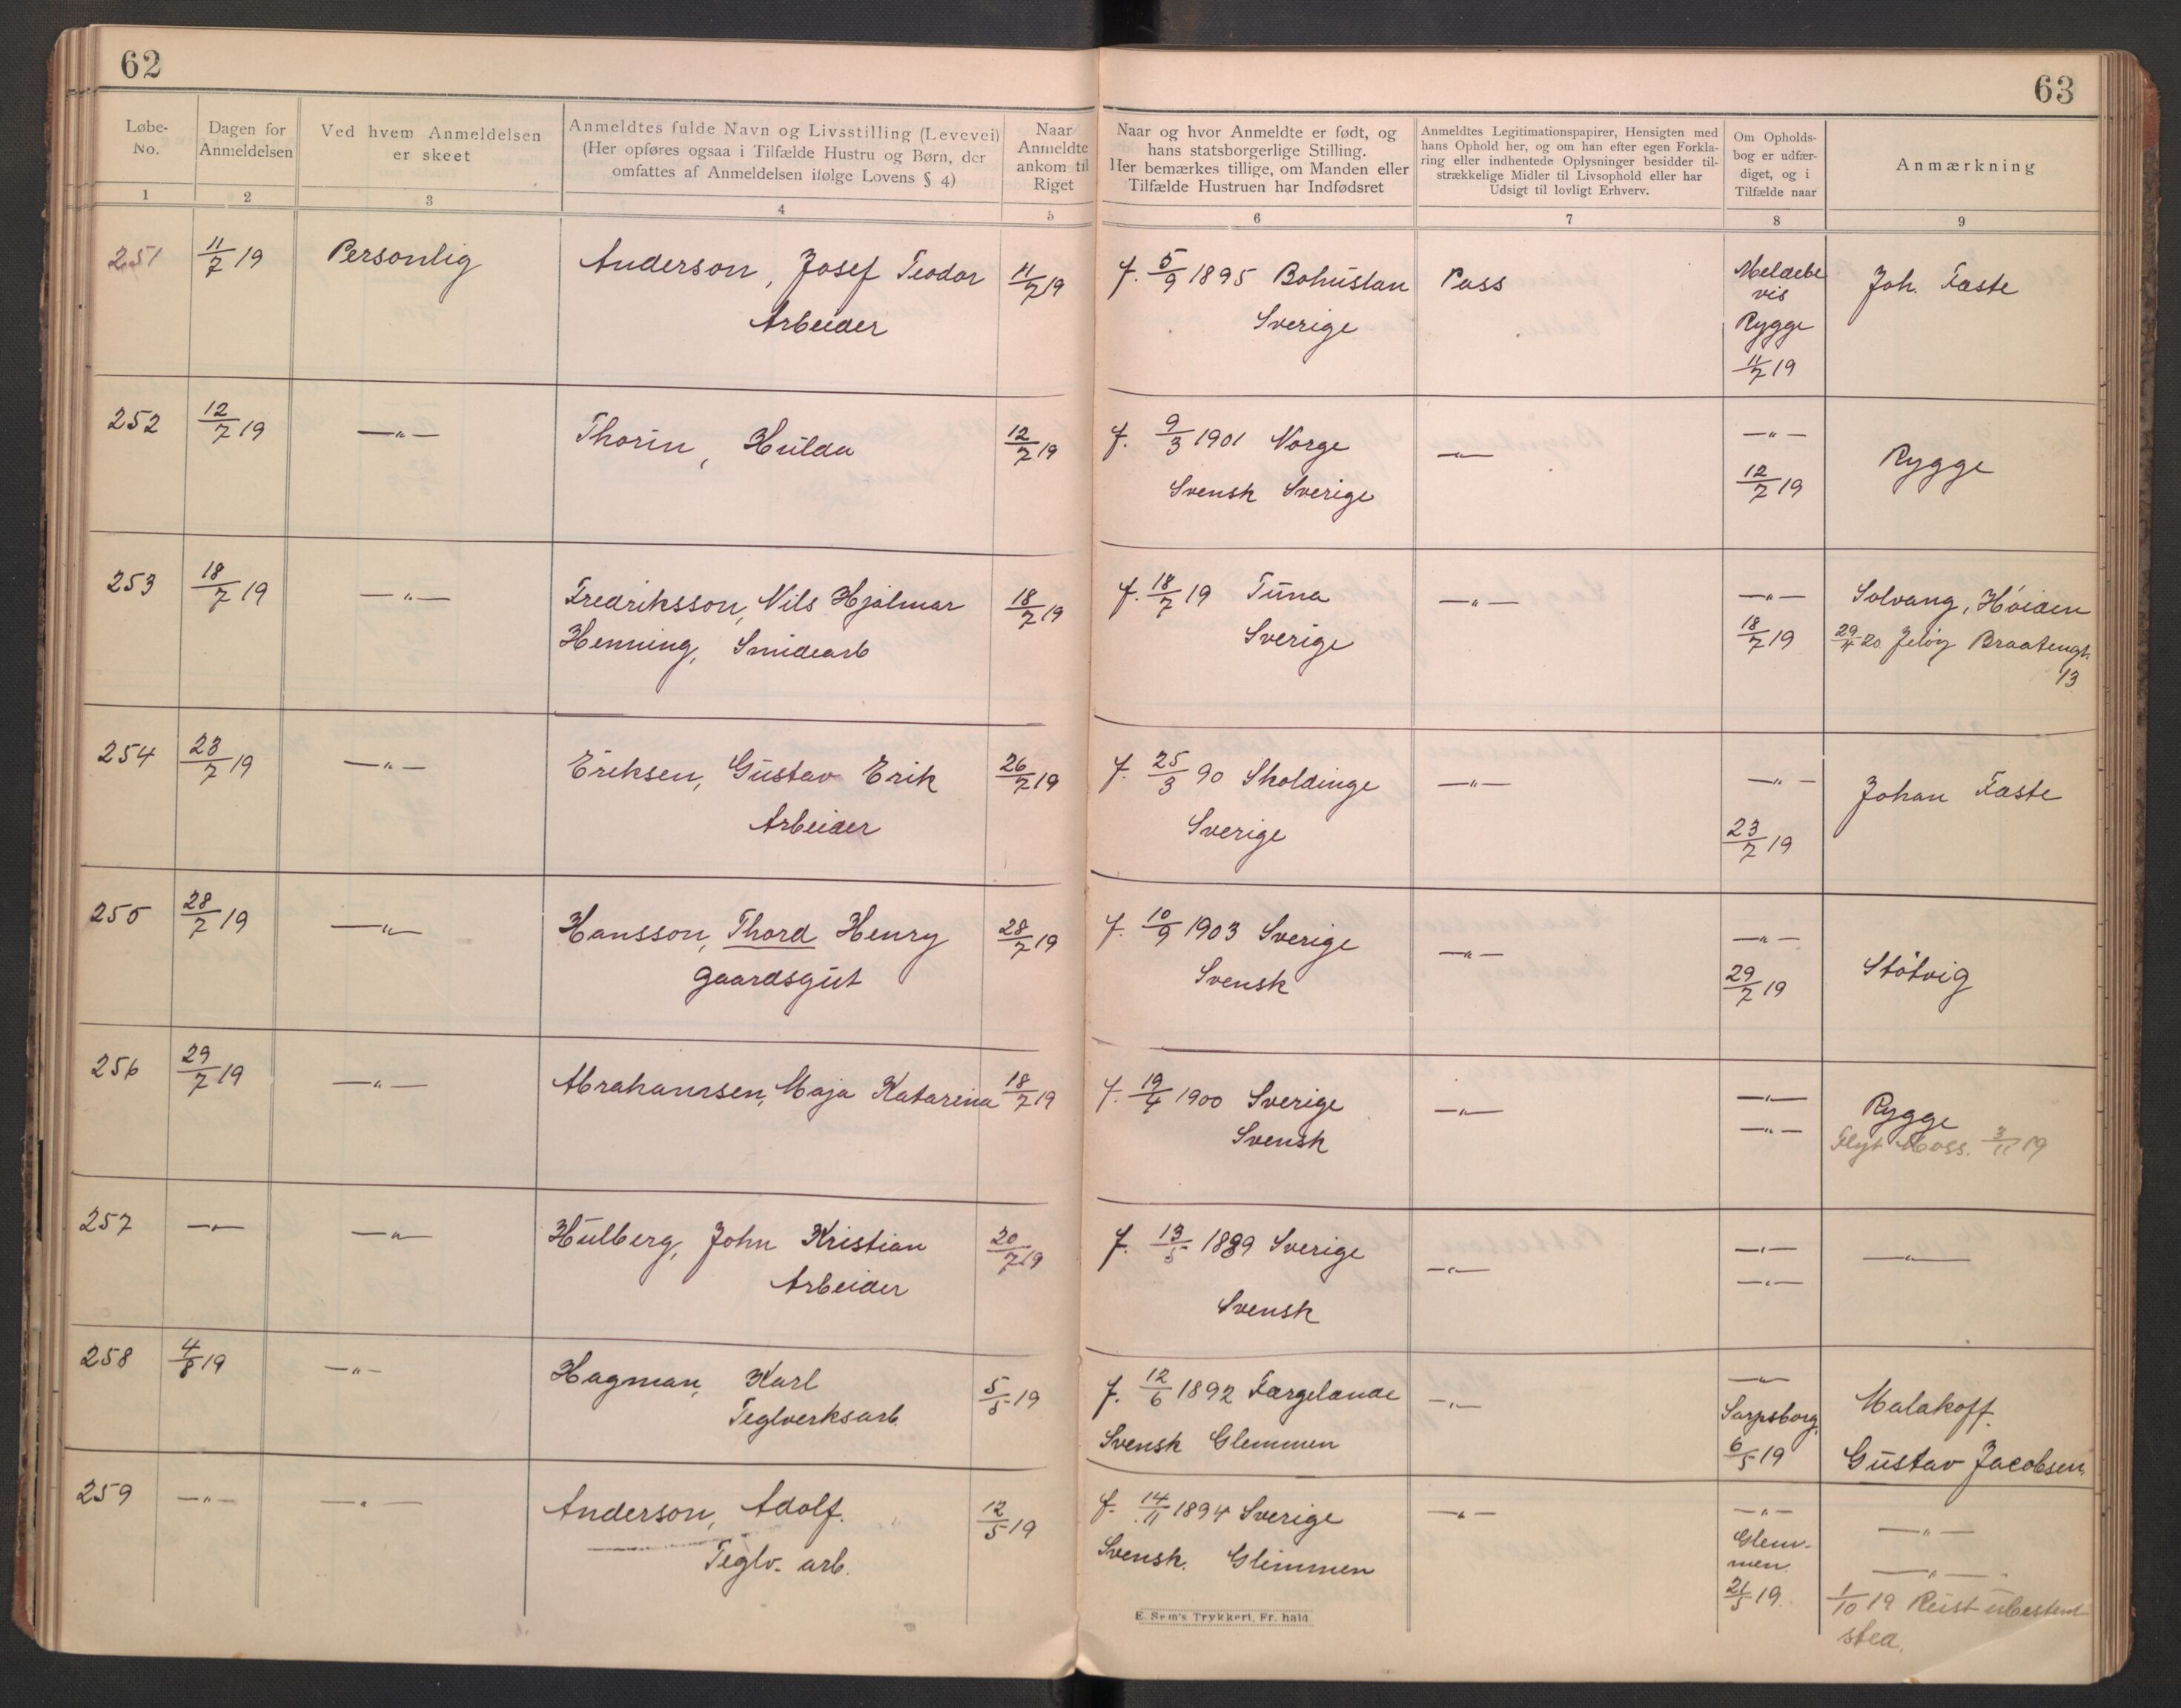 62
63
Løbe-No.
Dagen for Anmeldelsen
Ved hvem Anmeldelsen er skeet
Anmeldtes fulde Navn og Livsstilling (Levevei)
(Her opføres ogsaa i Tilfælde Hustru og Børn, der
omfattes af Anmeldelsen ifølge Lovens § 4)
Naar Anmeldte ankom til Riget
Naar og hvor Anmeldte er født, og
hans statsborgerlige Stilling.
Her bemærkes tillige, om Manden eller
Tilfælde Hustruen har Indfødsret
Anmeldtes Legitimationspapirer, Hensigten med
hans Ophold her, og om han efter egen Forkla-
ring eller indhentede Oplysninger besidder til-
strækkelige Midler til Livsophold eller har
Udsigt til lovligt Erhverv.
Om Opholds-
bog er udfær-
diget, og i
Tilfælde naar
Anmærkning
1 2 3 4 5 6 7 8 9
251 11/7 19 Personlig Anderson, Josef Teodor 11/7 19 f. 5/9 1895 Bohuslan Pass Meldebe
vis
Arbeider Sverige Rygge Joh. Faste
11/7 19
252 12/7 19 —„— Thorin, Hulda 12/7 19 f. 9/3 1901 Norge —„— —„— Rygge
Svensk Sverige 12/7 19
253 18/7 19 —„— Fredriksson, Nils Hjalmar 18/7 19 f. 18/7 19 Tuna —„— —„— Solvang, Høiden
Henning, Smidearb Sverige 18/7 19 29/4 20 Jeløy Braatengt.
13
254 23/7 19 —„— Eriksen, Gustav Erik 26/7 19 f. 25/3 90 Skoldinge —„— —„— Johan Faste
Arbeider Sverige 23/7 19
255 28/7 19 —„— Hansson, Thord Henry 28/7 19 f. 10/9 1903 Sverige —„— —„— Støtvig
gaardsgut Svensk 29/7 19
256 29/7 19 —„— Abrahamsen, Maja Katarina 18/7 19 f. 19/4 1900 Sverige —„— —„— Rygge
Svensk —„— Flyt Moss. 3/11 19
257 —„— —„— Hulberg, John Kristian 20/7 19 f. 13/5 1889 Sverige —„— —„— —„—
Arbeider Svensk —„—
258 4/8 19 —„— Hagman, Karl 5/5 19 f. 12/6 1892 Færgelande —„— —„— Malakoff.
Teglverksarb. Svensk Glemmen Sarpsborg, Gustav Jacobsen.
6/5 19
259 —„— —„— Anderson, Adolf. 12/5 19 f. 14/11 1894 Sverige —„— —„— —„—
Teglv. arb. Svensk. Glemmen Glem-
men. —„—
21/5 19. 1/10 19 Reist ubestemt
sted.
E. Sem's Trykkeri, Fr. hald